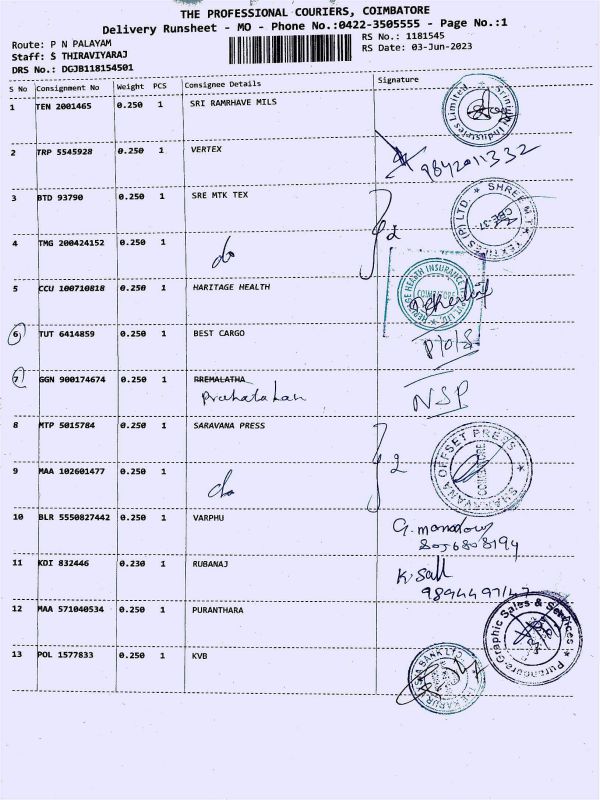 THE PROFESSIONAL COURIERS, COIMBATORE
Delivery Runsheet - MO - Phone No.:0422-3505555 - Page No.:1
Route: P N PALAYAM
Staff: S THIRAVIYARAJ
DRS No.: DGJB118154501
RS No.: 1181545
RS Date: 03-Jun-2023
S No Consignment No Weight PCS Consignee Details Signature
1 TEN 2001465 0.250 1 SRI RAMRHAVE MILS
2 TRP 5545928 0.250 1 VERTEX
9842011332
3 BTD 93790 0.250 1 SRE MTK TEX
SHREE M.T.K. TEXTILES (P) LTD
CBE-37
2
4 TMG 200424152 0.250 1
do
5 CCU 100710818 0.250 1 HARITAGE HEALTH
HERITAGE HEALTH INSURANCE
COIMBATORE
6 TUT 6414859 0.250 1 BEST CARGO
7 GGN 900174674 0.250 1 PREMALATHA
NSP
8 MTP 5015784 0.250 1 SARAVANA PRESS
SHARAVANA OFFSET PRESS
COIMBATORE
2
9 MAA 102601477 0.250 1
do
10 BLR 5550827442 0.250 1 VARPHU
8056808194
11 KDI 832446 0.230 1 RUBANAJ
12 MAA 571040534 0.250 1 PURANTHARA
Graphic Sales & Services
13 POL 1577833 0.250 1 KVB
BANK LTD